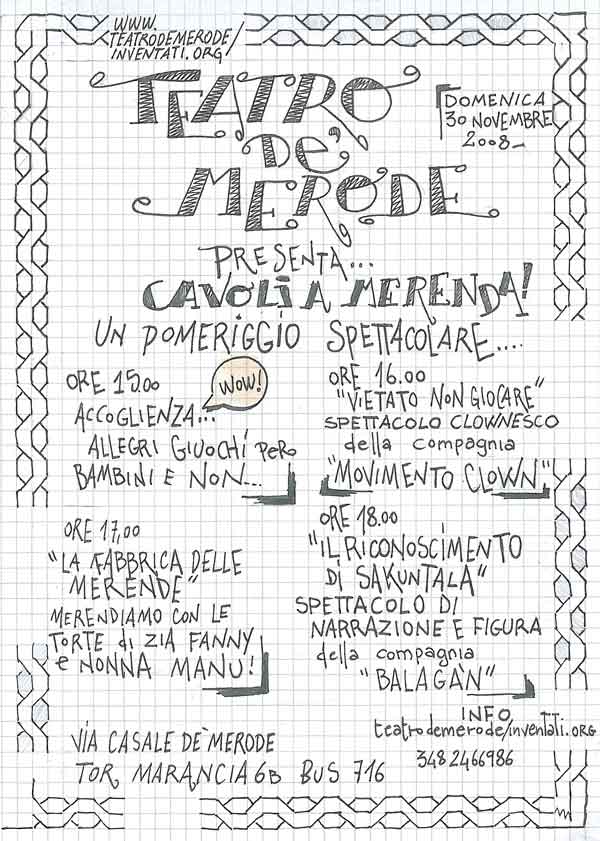 WWW.
TEATRODEMERODE/
INVENTATI.ORG/
TEATRO
DE'
MERODE
DOMENICA
30 NOVEMBRE
2008_
PRESENTA...
CAVOLI A MERENDA!
UN POMERIGGIO SPETTACOLARE....
ORE 15.00
WOW!
ACCOGLIENZA...
ALLEGRI GIUOCHI PER
BAMBINI E NON...
ORE 16.00
"VIETATO NON GIOCARE"
SPETTACOLO CLOWNESCO
della compagnia
"MOVIMENTO CLOWN"
ORE 17,00
"LA FABBRICA DELLE
MERENDE"
MERENDIAMO CON LE
TORTE di ZIA FANNY
e NONNA MANU!
ORE 18.00
"IL RICONOSCIMENTO
DI SAKUNTALA"
SPETTACOLO DI
NARRAZIONE E FIGURA
della compagnia
"BALAGÀN"
INFO
teatrodemerode/inventati.org
348 2466986
VIA CASALE DE' MERODE
TOR MARANCIA 6B BUS 716